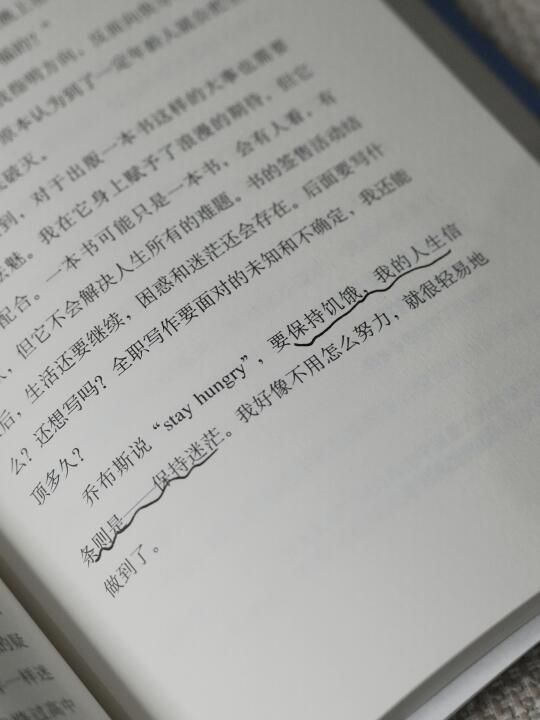 福的？”
指明方向，反而向我
原本认为到了一定年龄人就会把
破灭。
到，对于出版一本书这样的大事也需要
祛魅。我在它身上赋予了浪漫的期待，但它
配合。一本书可能只是一本书，会有人看，有
，但它不会解决人生所有的难题。书的签售活动结
后，生活还要继续，困惑和迷茫还会存在。后面要写什
么？还想写吗？全职写作要面对的未知和不确定，我还能
顶多久？
乔布斯说“stay hungry”，要保持饥饿，我的人生信
条则是——保持迷茫。我好像不用怎么努力，就很轻易地
做到了。
的疑
一样迷
路过高中